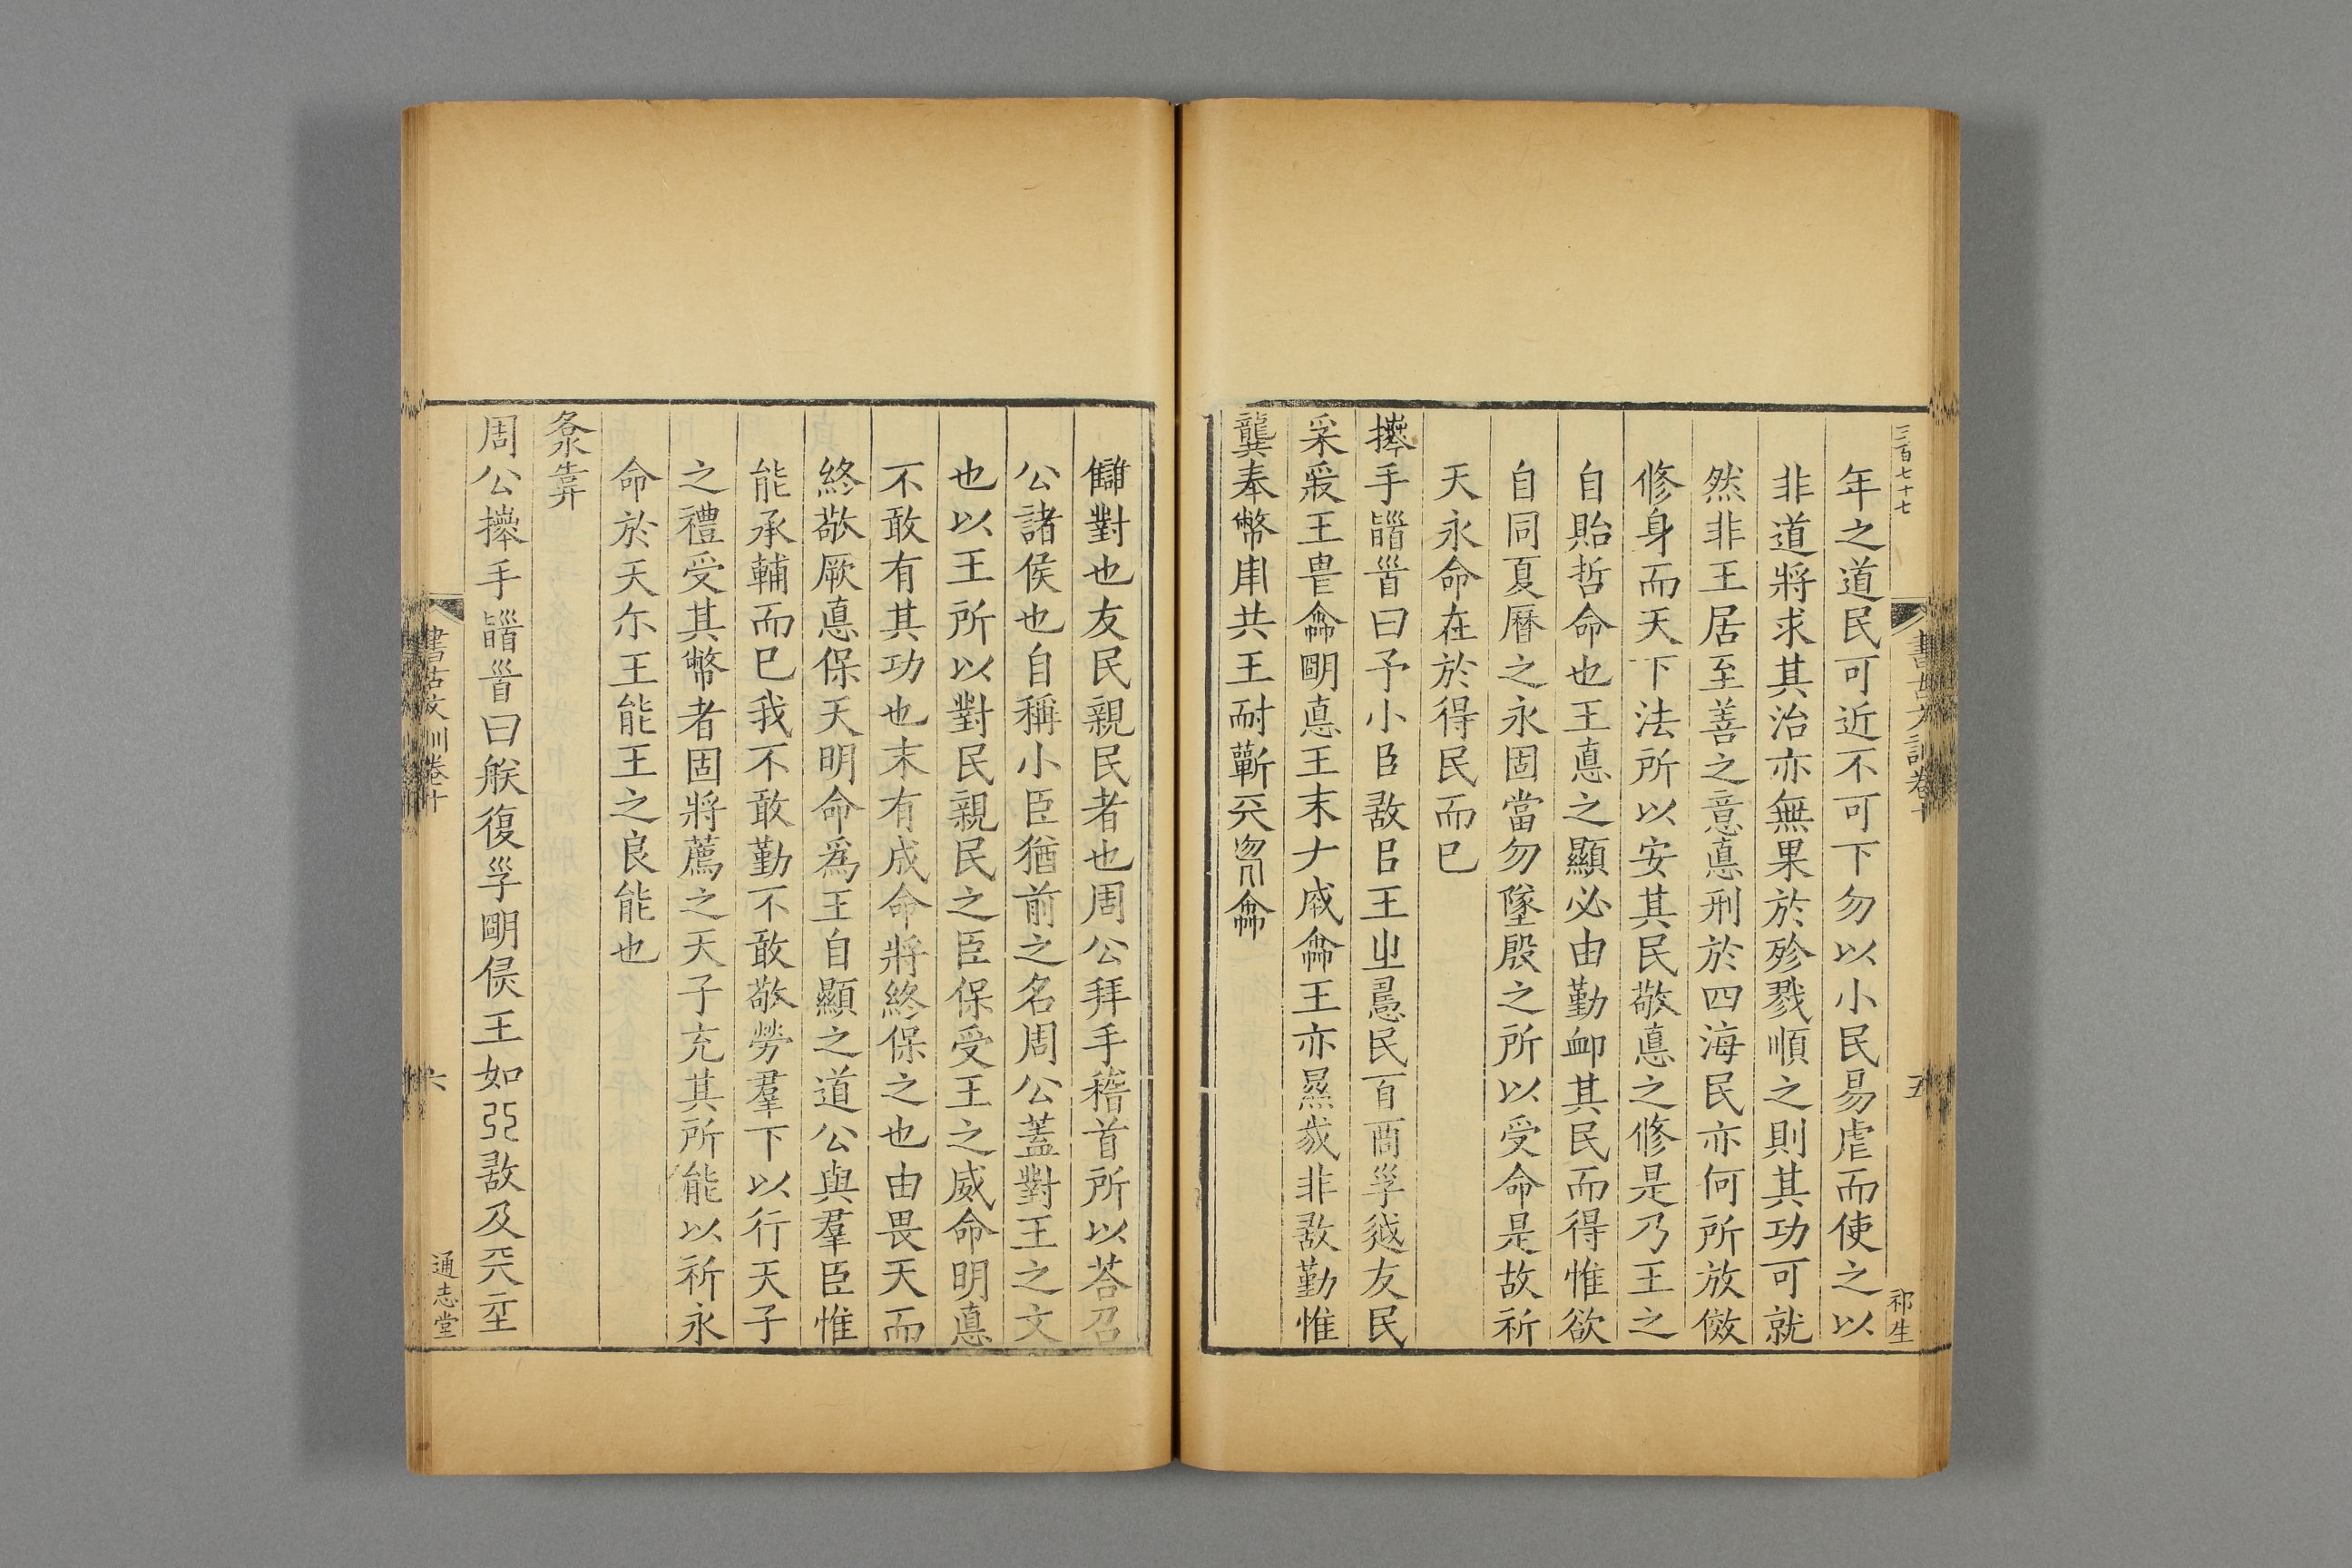 三百七十七
年之道民可近不可下勿以小民易虐而使之以
非道將求其治亦無果於殄戮順之則其功可就
然非王居至善之意悳刑於四海民亦何所放傚
修身而天下法所以安其民敬悳之修是乃王之
自貽哲命也王悳之顯必由勤卹其民而得惟欲
自同夏曆之永固當勿墜殷之所以受命是故祈
天永命在於得民而已
手𩒨𦣻曰予小臣敔㠯王㞢民百商孚越友民
采𤔌王畏龠朙悳王末𠂇成龠王亦㬎哉非敔勤惟
龔奉幣用共王耐蘄兲龠
五
祁生
讎對也友民親民者也周公拜手稽首所以荅召
公諸侯也自稱小臣猶前之名周公蓋對王之文
也以王所以對民親民之臣保受王之威命明悳
不敢有其功也末有成命將終保之也由畏天而
終敬厥悳保天明命爲王自顯之道公與羣臣惟
能承輔而已我不敢勤不敢敬勞羣下以行天子
之禮受其幣者固將薦之天子充其所能以祈永
命於天尓王能王之良能也
周公手𩒨𦣻曰朕復孚朙侯王如敔及兲
書古文訓卷十
六
通志堂